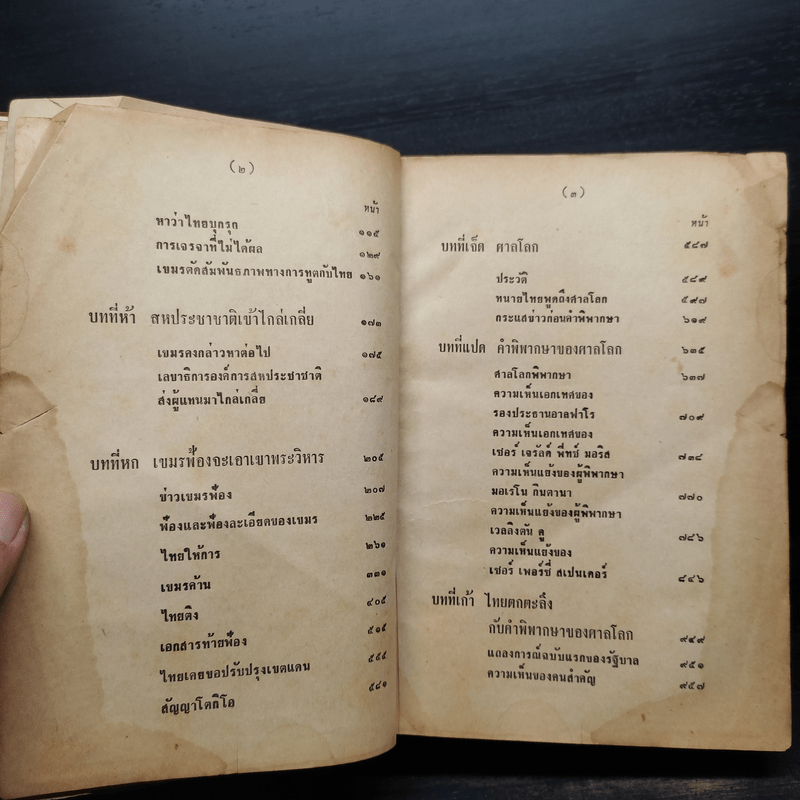 (๒)
หน้า
หาว่าไทยบุกรุก ๑๑๕
การเจรจาที่ไม่ได้ผล ๑๒๙
เขมรตัดสัมพันธภาพทางการทูตกับไทย ๑๖๑
บทที่ห้า สหประชาชาติเข้าไกล่เกลี่ย ๑๗๓
เขมรคงกล่าวหาต่อไป ๑๗๕
เลขาธิการองค์การสหประชาชาติ
ส่งผู้แทนมาไกล่เกลี่ย ๑๘๙
บทที่หก เขมรฟ้องจะเอาเขาพระวิหาร ๒๐๕
ข่าวเขมรฟ้อง ๒๐๗
ฟ้องและฟ้องละเอียดของเขมร ๒๒๕
ไทยให้การ ๒๖๑
เขมรค้าน ๓๓๑
ไทยติง ๔๐๕
เอกสารท้ายฟ้อง ๕๑๕
ไทยเคยขอปรับปรุงเขตแดน ๕๕๕
สัญญาโตกิโอ ๕๘๑
(๓)
หน้า
บทที่เจ็ด ศาลโลก ๕๘๗
ประวัติ ๕๘๙
ทนายไทยพูดถึงศาลโลก ๕๙๗
กระแสข่าวก่อนคำพิพากษา ๖๑๙
บทที่แปด คำพิพากษาของศาลโลก ๖๓๕
ศาลโลกพิพากษา ๖๓๗
ความเห็นเอกเทศของ
รองประธานอาลฟาโร ๗๐๙
ความเห็นเอกเทศของ
เซอร์ เจรัลด์ ฟิทซ์ มอริส ๗๓๘
ความเห็นแย้งของผู้พิพากษา
มอเรโน กินตานา ๗๗๐
ความเห็นแย้งของผู้พิพากษา
เวลลิงตัน คู ๗๘๖
ความเห็นแย้งของ
เซอร์ เพอร์ซี่ สเปนเดอร์ ๘๔๖
บทที่เก้า ไทยตกตะลึง
กับคำพิพากษาของศาลโลก ๙๔๙
แถลงการณ์ฉบับแรกของรัฐบาล ๙๕๑
ความเห็นของคนสำคัญ ๙๕๗